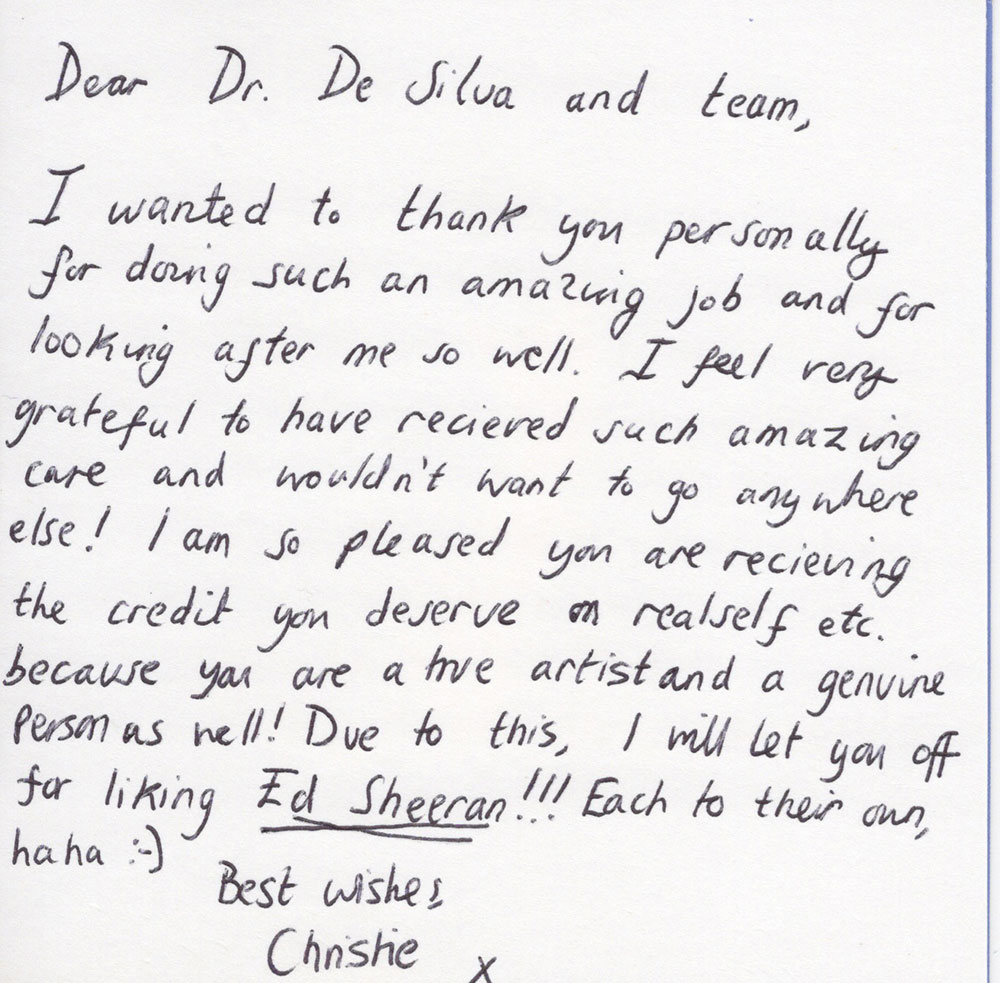 Dear Dr. De Silva and team,
I wanted to thank you personally
for doing such an amazing job and for
looking after me so well. I feel very
grateful to have recieved such amazing
care and wouldn't want to go anywhere
else! I am so pleased you are recieving
the credit you deserve on realself etc.
because you are a true artist and a genuine
person as well! Due to this, I will let you off
for liking Ed Sheeran!!! Each to their own,
haha :-)
Best wishes,
Christie x